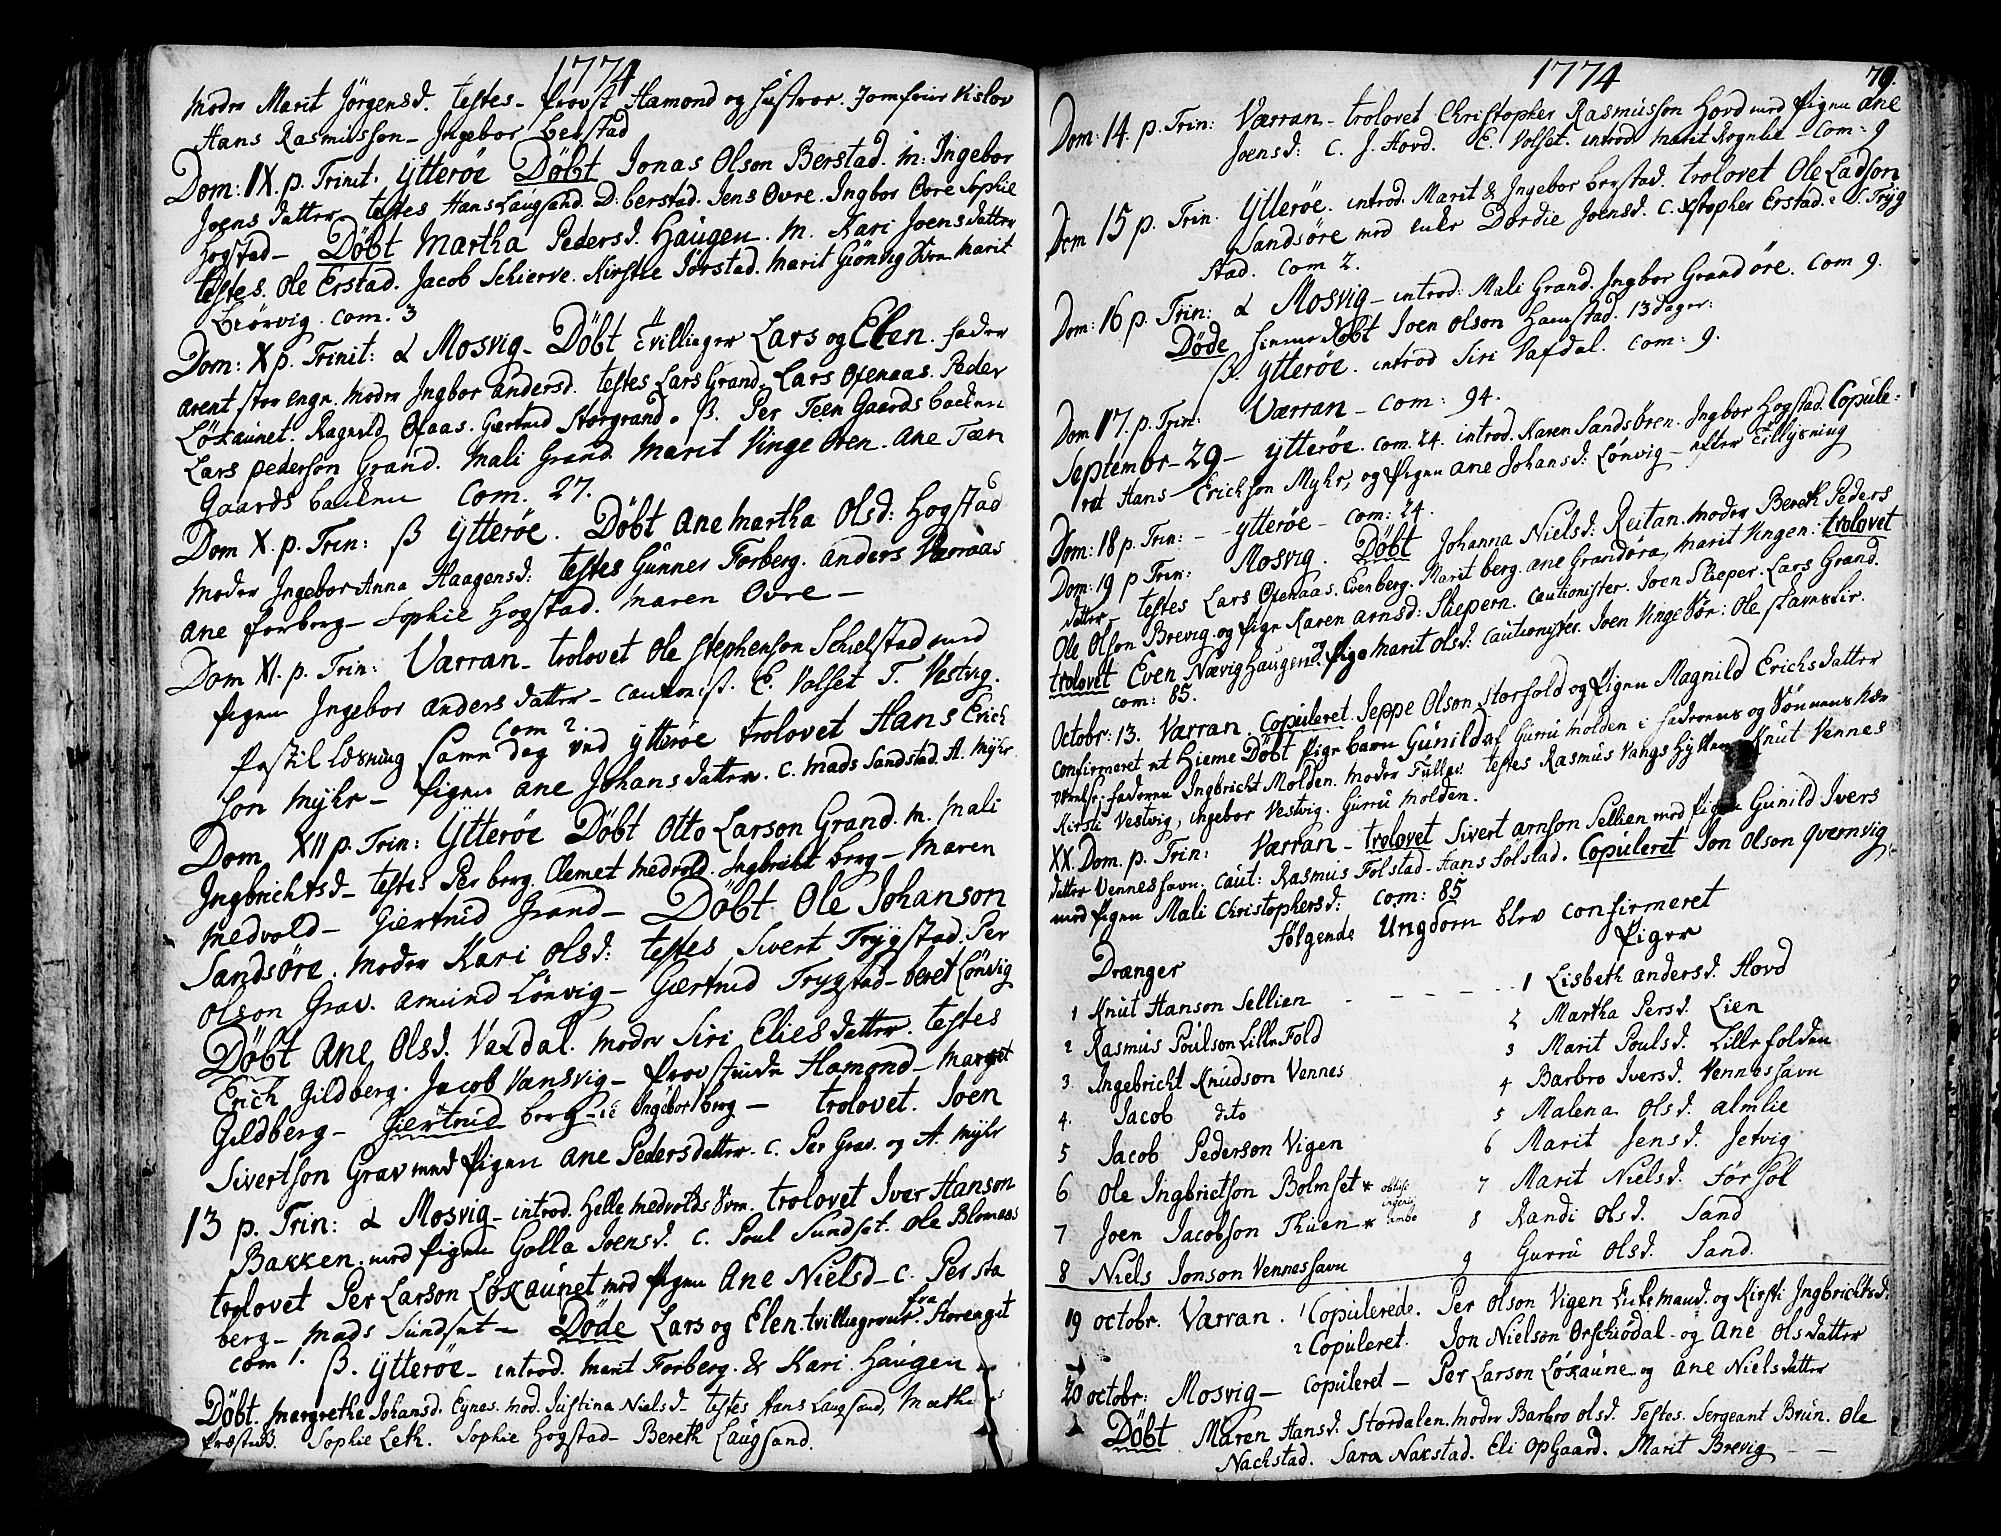 1774
moder Marit Jörgensd. testes - Provst Hamond og hustroe. Jomfrue Kislov
Hans Rasmusson - Ingebor Berstad
Dom: IX. p. Trinit. Ytteröe Döbt Jonas Olson Berstad. m: Ingebor
Joens datter testes Hans Laugsand. D. berstad. Jens Ovre. Ingbor Ovre Sophie
Hogstad - Döbt Martha Pedersd. Haugen. m. Kari Joensdatter
testes. Ole Erstad. Jacob Schierve. Kirstie Jörstad. Marit Giönvig Marit
Leörvig. com. 3
Dom: X p. Trinit: α Mosvig - Döbt tvillinger Lars og Elen. fader
arent storengn. moder Ingbor andersd. testes Lars Grand. Lars Oxenaas. Peder
Löxaunet. Ragnild Oxaas. Giertrud Storgrand. ß. Per Teen Gaardsbacken
Lars pederson Grand. Mali Grand. Marit Vinge ören. Ane Teen
Gaards backen Com. 27.
Dom X. p. Trin: ß Ytteröe. Döbt Ane Martha Olsd: Hogstad
moder Ingebor Anna Haagensd: testes Gunner Forberg. anders Væraas
ane forberg - Sophie Hogstad. maren Ovre -
Dom XI. p. Trin: Værran - trolovet Ole Stephenson Schielstad med
pigen Ingebor anders datter - cautionist. E. Volset T. Vestvig.
com 2.
Postil læsning samme dag ved ytteröe trolovet Hans Erich
son Myhr - pigen ane Johansdatter. C. mads Sandstad. A. Myhr
Dom XII p. Trin: Ytteröe Döbt Otto Larson Grand. m. Mali
Ingbrichtsd - testes Per berg Clemet medvold. Ingbricht berg - Maren
medvold - Giertrud Grand - Döbt Ole Johanson
Sandsöre. moder Kari Olsd: testes Sivert Trygstad. Per
Olson Grav. Amund Lönvig - Giertrud Trygstad - beret Lönvig
Döbt Ane Olsd. Vaxdal. moder Siri Eliesdatter. testes
Erich Gildberg. Jacob Vansvig - Provstinde Hamond - Margret
Gildberg - Giertrud berg - Ingebor berg - trolovet. Joen
Sivertson Grav med Pigen Ane Pedersdatter. C. Per Grav. og A. Myhr
13 p. Trin: α Mosvig - introd. Helle medvolds ören. trolovet Iver Hanson
Bakken. med pigen Golla Joensd. C. Poul Sundset. Ole Blomaas
trolovet Per Larson Löxaunet med Pigen Ane Nielsd - C. Per sta
berg - Mads Sundset - Döde Lars og Elen. tvillinger fra Storenget
com 1. ß. Ytteröe - introd. marit Forberg. & Kari. Haugen
Döbt. Margrethe Johansd. Eynes. mod. Justina Nielsd - testes Hans Laugsand,
Sophie Leth. Sophie Hogstad - Bereth Laugsand.
1774
79.
Dom: 14. p. Trin: Værran - trolovet Christopher Rasmusson Hovd med Pigen Ane
Joensd: C. J. Hovd. E. Volset. introd Marit Rognlie - Com: 9
Dom 15 p. Trin. Ytteröe. introd. Marit & Ingebor berstad. trolovet Ole Ladson
Sandsöre med enke Dordie Joensd. C. Xstopher Erstad. S. Tryg
stad. Com 2.
Dom: 16 p. Trin: α Mosvig - introd: Mali Grand. Ingbor Grandöre. Com 9.
Döde hiemme döbt Joen Olson Hamstad. 13 dager:
ß. Ytteröe. introd Siri Vaxdal. com: 9.
Dom 17. p. Trin: Værran - com: 94.
Septembr - 29 - ytteröe. com. 24. introd. Karen Sandsören. Ingbor Hogstad. Copule-
ret Hans Erichson Myhr, og Pigen ane Johansd. Lönvig - efter tillysning
Dom: 18 p. Trin: - - ytteröe - com: 24.
Dom: 19 p Trin: Mosvig. Döbt Johanna Nielsd: Reitan. moder Bereth Peders
datter - testes Lars Oxenaas. Even berg. Marit berg. ane Grandöra, marit Vingen: trolovet
Ole Olson Brevig og pige Karen arnsd: Sliepern. Cautionister. Joen Slieper. Lars Grand.
trolovet Even Nævighaugen. & pige Marit Olsd: Cautionister. Joen Vingeör: Ole stamslir.
com: 85.
Octobr: 13. Værran. Copuleret. Jeppe Olson Storfold og Pigen Magnild Erichsdatter
confirmeret et hieme Döbt Pige barn Gunilda
fadern Ingbricht Molden. moder Gurru Molden. testes Rasmus Vangshylla Knut Vennes
Kirsti Vestvig, ingebor Vestvig. Gurru molden.
XX. Dom. p. Trin: Værran - trolovet Sivert arnson Sellien med Pigen Gunild Ivers
datter Venneshavn. Caut: Rasmus Folstad. Hans Folstad. Copuleret Jon Olson qvernvig
med Pigen Mali Christophersd: com: 85
Fölgende Ungdom blev confirmeret
Drænger Piger
1 Knut Hanson Sellien - - - - - 1 Lisbeth andersd. Hovd
2 Rasmus Poulson Lille Fold 2 Martha Persd. Lien
3 Ingebricht Knudson Vennes 3 Marit Poulsd. Lillefolden
4. Jacob dito 4 Barbro Iversd. Venneshavn
5 Jacob Pederson Vigen 5 Malena Olsd. almlie
6 Ole Ingbrictson Bolmset * 6 Marit Jensd. Jetvig
7 Joen Jacobson Thuen * ambo 7 Marit Nielsd. Förhol
8 Niels Jonson Venneshavn 8 Randi Olsd. Sand
9 Gurru Olsd. Sand.
19 octobr. Værran. 1 Copulerede. Per Olson Vigen Enkemand. og Kirsti Ingbrichtsd:
2 Copuleret. Jon Nielson Orschiödal - og Ane Olsdatter
20 octobr: Mosvig - Copuleret - Per Larson Löxaune og Ane Nielsdatter
Döbt Maren Hansd. Stordalen. moder Barbro Olsd. Testes. Sergeant Brun. Ole
Nackstad. Sara Nakstad. Eli OpGaard. Marit Brevig - -